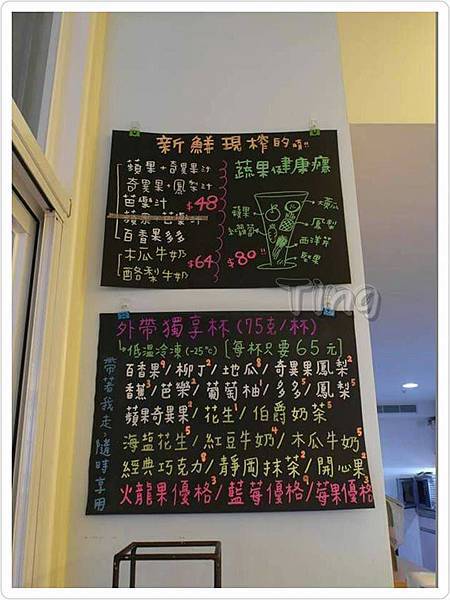 新鮮現榨的唷!!
蘋果+奇異果汁
奇異果+鳳梨汁
芭樂汁
蘋果+芭樂汁
$48
百香果多多
木瓜牛奶
酪梨牛奶
$64
蔬果健康瘋
蘋果
紅蘿蔔
大黃瓜
鳳梨
西洋芹
堅果
$80!!
Ting
外帶獨享杯(75克/杯)
低溫冷凍(-25℃)[每杯只要65元]
帶著我走,隨時享用
百香果9/柳丁2/地瓜8/奇異果鳳梨2
香蕉3/芭樂2/葡萄柚1/多多1/鳳梨5
蘋果奇異果2/花生1/伯爵奶茶1
海塩花生5/紅豆牛奶4/木瓜牛奶5
經典巧克力8/靜岡抹茶2/開心果2
火龍果優格3/藍莓優格9/莓果優格